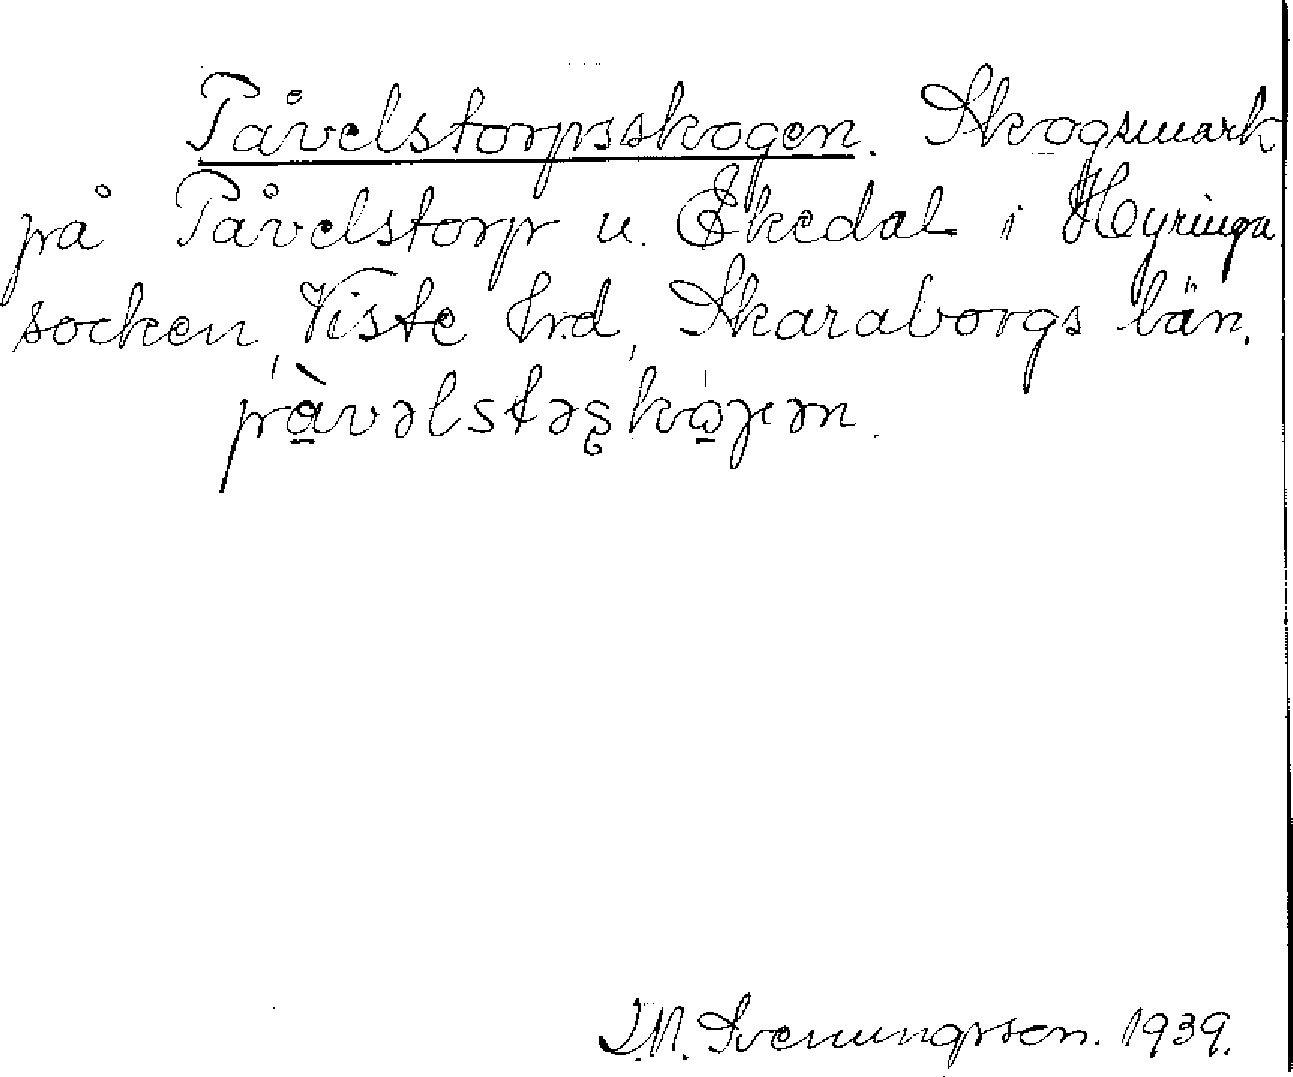 Påvelstorpsskogen. Skogsmark
på Påvelstorp u. Ekedal i Hyringa
socken, Viste hrd, Skaraborgs län.
pàvəlstəʂkòɟən.
J.N. Svenungsson. 1939.